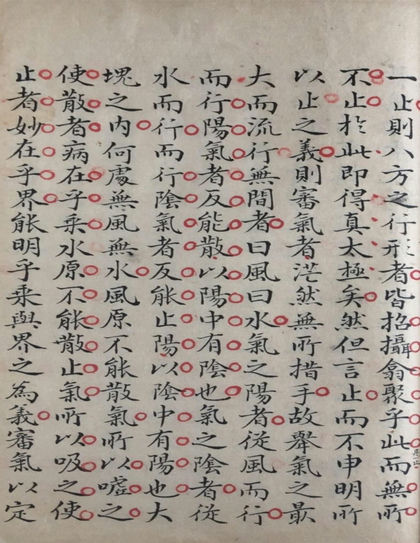 一止則八方之行形者皆招攝翕聚乎此而無所
不止於此即得真太極矣然但言止而不申明所
以止之義則審氣者茫然無所措手故舉氣之最
大而流行無間者曰風曰水氣之陽者從風而行
而行陽氣者反能散以陽中有陰也氣之陰者從
水而行而行陰氣者反能止陽以陰中有陽也大
塊之内何處無風無水風原不能散氣所以噓之
使散者病在乎乘水原不能散止氣所以吸之使
止者妙在乎界能明乎乘與界之為義審氣以定